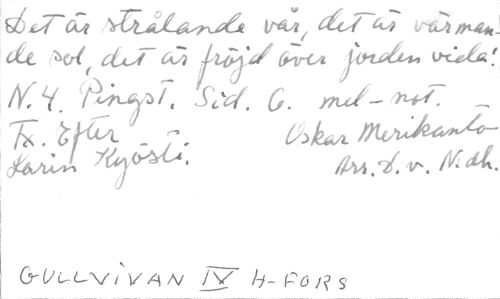 Det är strålande vår, det är värman-
de sol, det är fröjd över jorden vida!
N. 4. Pingst. Sid. 6. mel-not.
Tx. Efter Oskar Merikanto
Larin Kyösti. Arr. D. v. N.dh.
GULLVIVAN IV H-FORS